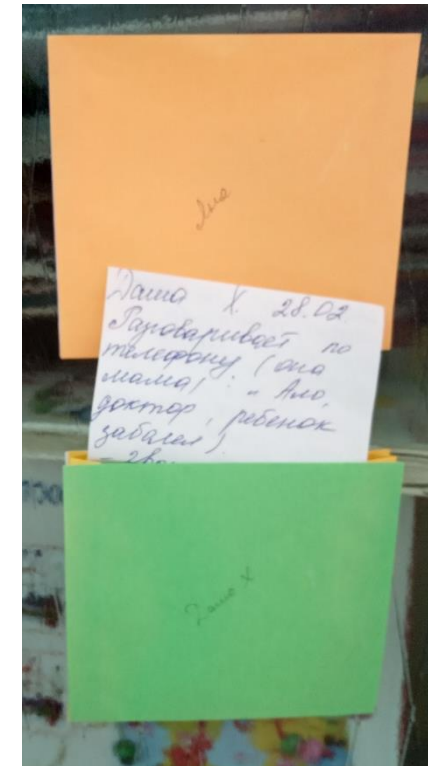 Даша Х. 28.02.
Разговаривает по
телефону (она
мама) : " Ало,
доктор, ребенок
заболел)
Даша Х